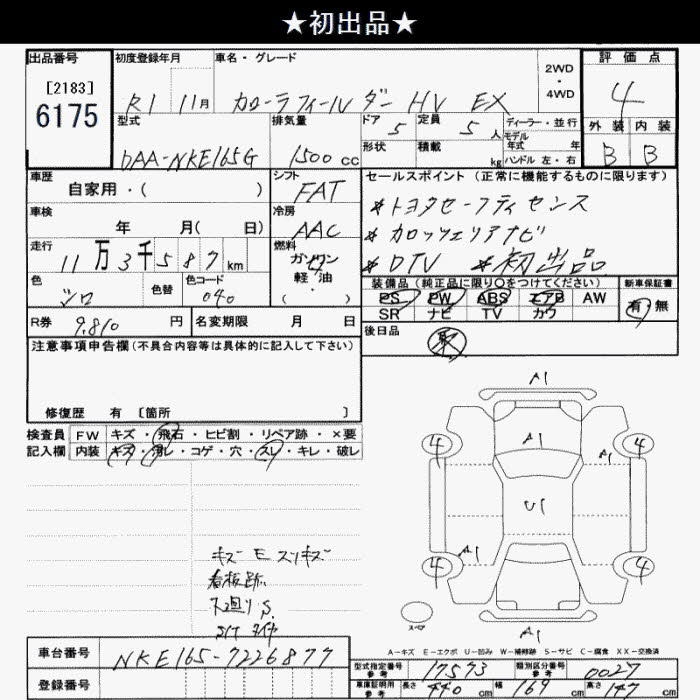 ★初出品★
出品番号 初度登録年月 車名・グレード 2WD・4WD 評価点
[2183]
6175 R1 11月 カローラフィールダー HV EX 4
型式 排気量 ドア 5 定員 5人 ディーラー・並行 外装 内装
モデル年式 年
DAA-NKE165G 1500cc 形状 積載 kg ハンドル 左・右 B B
車歴 シフト セールスポイント(正常に機能するものに限ります)
自家用・( ) FAT *トヨタセーフティセンス
車検 冷房 *カロッツェリアナビ
年 月( 日) AAC
走行 燃料 *DTV *初出品
11万3千587km ガソリン
軽・油
・( )
色 色替 色コード 装備品(純正品に限り○をつけてください) 新車保証書
シロ 040 PS PW ABS エアB AW 有 無
SR ナビ TV カワ
R券 9,810円 名変期限 月 日 後日品
取
注意事項申告欄(不具合内容等は具体的に記入して下さい)
修復歴 有 [箇所 ]
検査員 FW キズ・飛石・ヒビ割・リペア跡・×要
記入欄 内装 キズ・汚レ・コゲ・穴・スレ・キレ・破レ
A1
A1
4 4
A1
U1
A1
4 4
スペア
A1
キズ E スリキズ
看板跡
下廻りS
A-キズ E-エクボ U-凹み W-補修跡 S-サビ C-腐食 XX-交換済
車台番号 NKE165-7226877
型式指定番号 参考 17573 類別区分番号 参考 0027
登録番号
車庫証明用 参考 長さ 440cm 幅 169cm 高さ 147cm